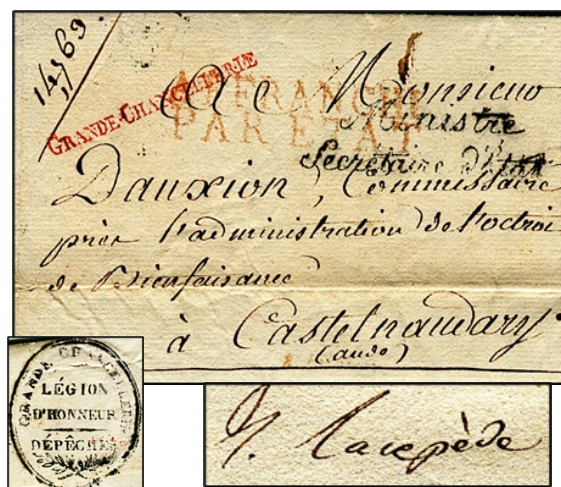 14569
GRANDE-CHANCELLERIE
AFFRANCHI
PAR ETAT
A Monsieur
Ministre
Secrétaire d'Etat
Dauxion, Commissaire
près l'administration de l'octroi
de Bienfaisance
à Castelnaudary
(aude)
GRANDE CHANCELLERIE
LÉGION
D'HONNEUR
DÉPÊCHES
Lacepède